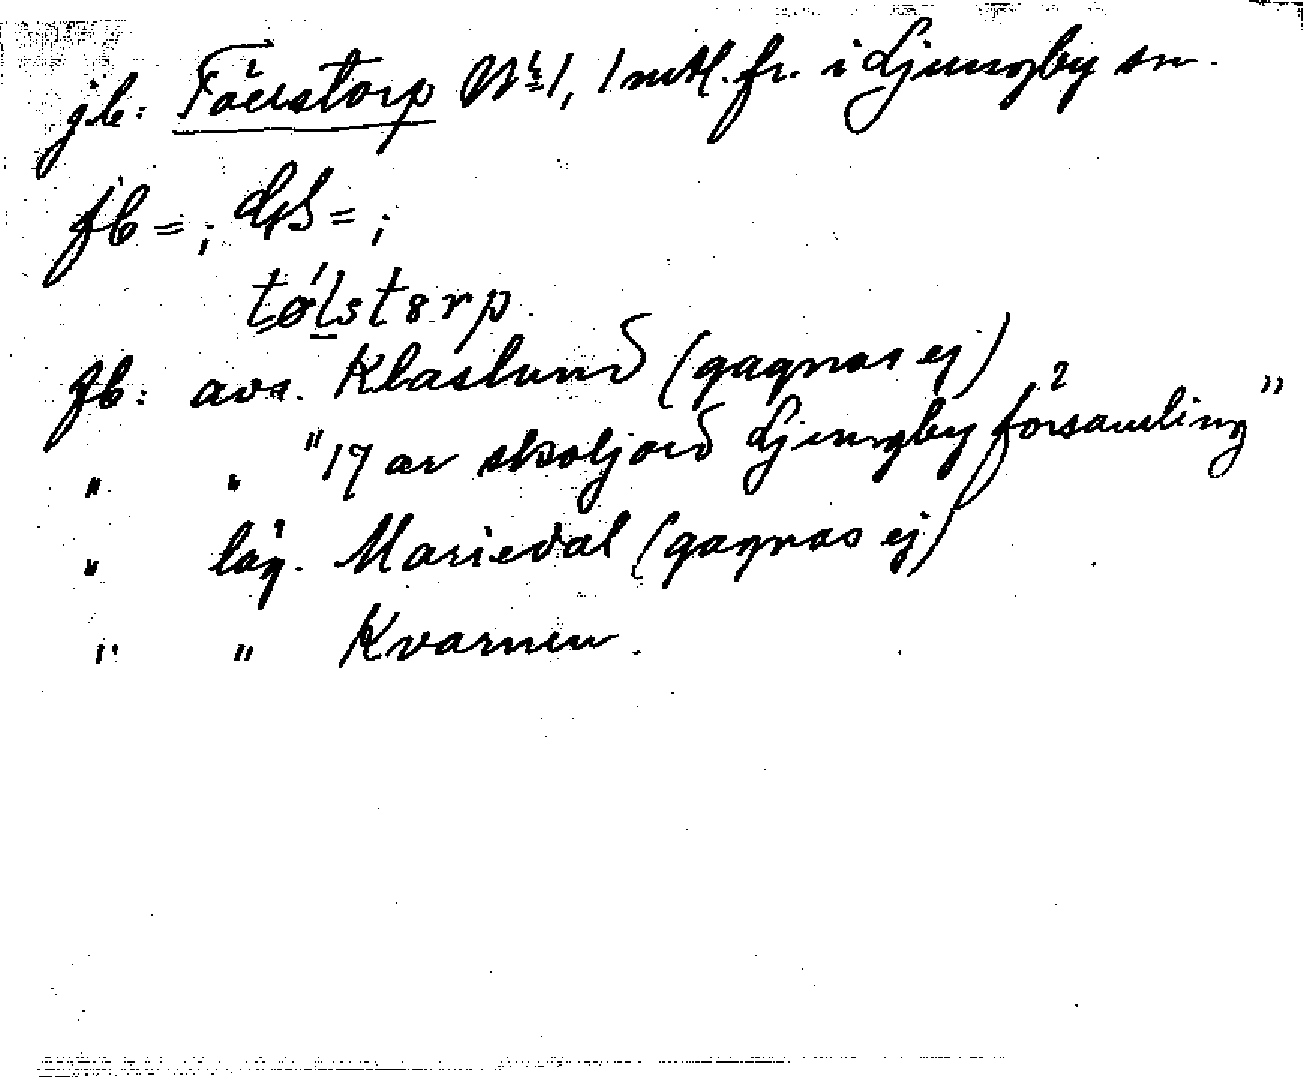 jb: Töllstorp Nr 1, 1 mtl. fr. i Ljungby sn.
fb = ; GS = ;
tø̀lstorp
fb: avs. Klaslund (gagnas ej)
" " "17 ar skoljord Ljungby församling"
" läg. Mariedal (gagnas ej)
" " Kvarnen.